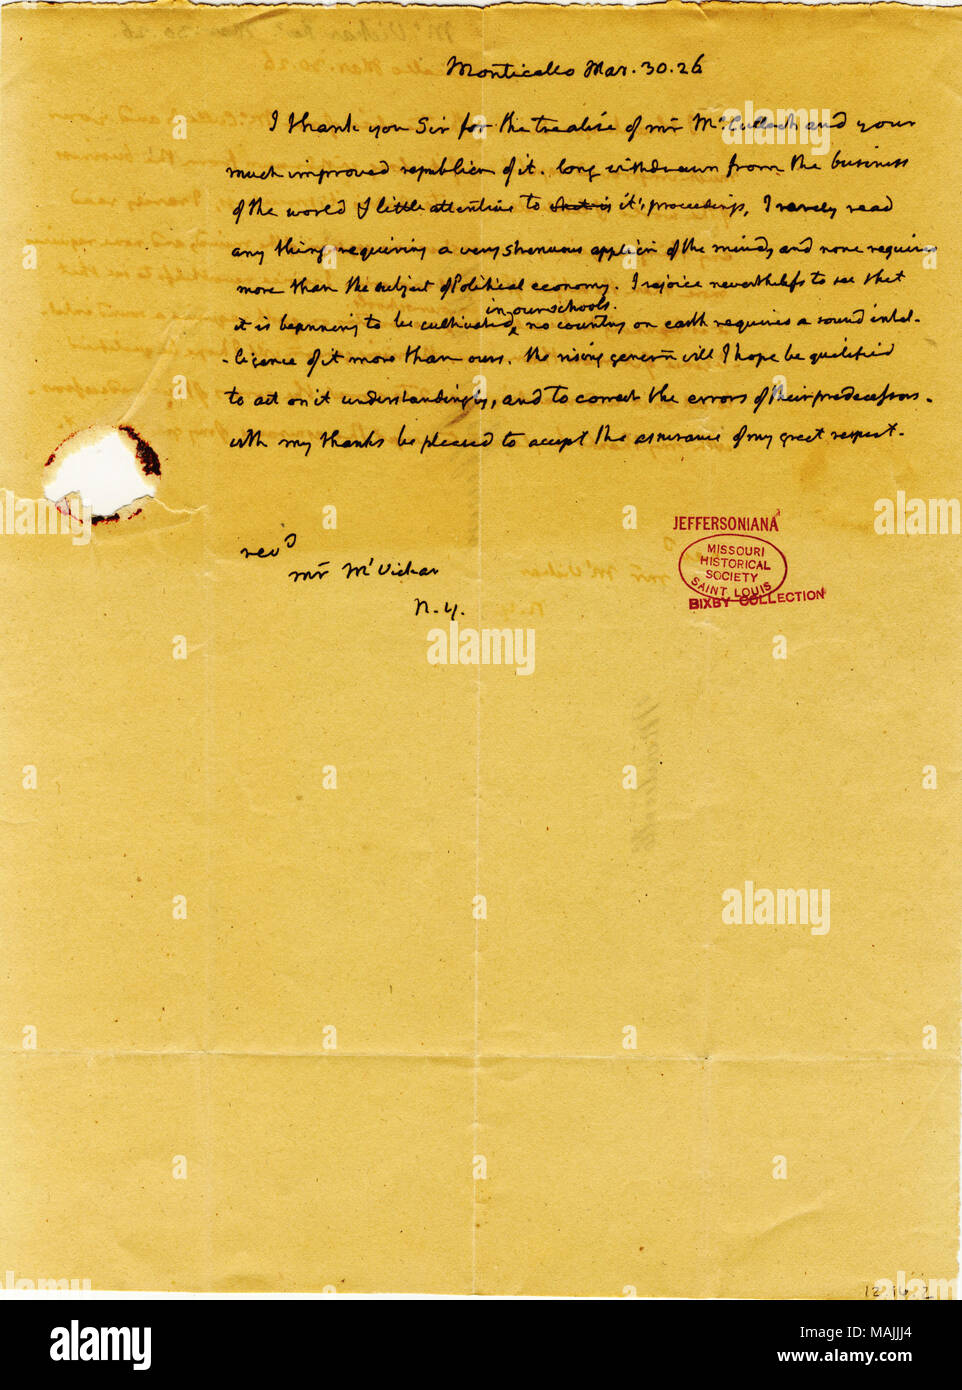 Monticello Mar. 30. 26
I thank you Sir for the treatise of mr McCulloch and your
much improved republicñ of it. long withdrawn from the business
of the world & little attentive to it's proceedings, I rarely read
any thing requiring a very strenuous applicñ of the mind, and none requires
more than the subject of Political economy. I rejoice nevertheless to see that
in our schools.
it is beginning to be cultivated ^ no country on earth requires a sound intel-
-ligence of it more than ours. the rising genern will I hope be qualified
to act on it understandingly, and to correct the errors of their predecessors.
with my thanks be pleased to accept the assurance of my great respect.
JEFFERSONIANA
MISSOURI
HISTORICAL
SOCIETY
SAINT LOUIS
BIXBY COLLECTION
revd
mr McVickar
N. Y.
12.16.2
alamy
Image ID: MAJJJ4
www.alamy.com